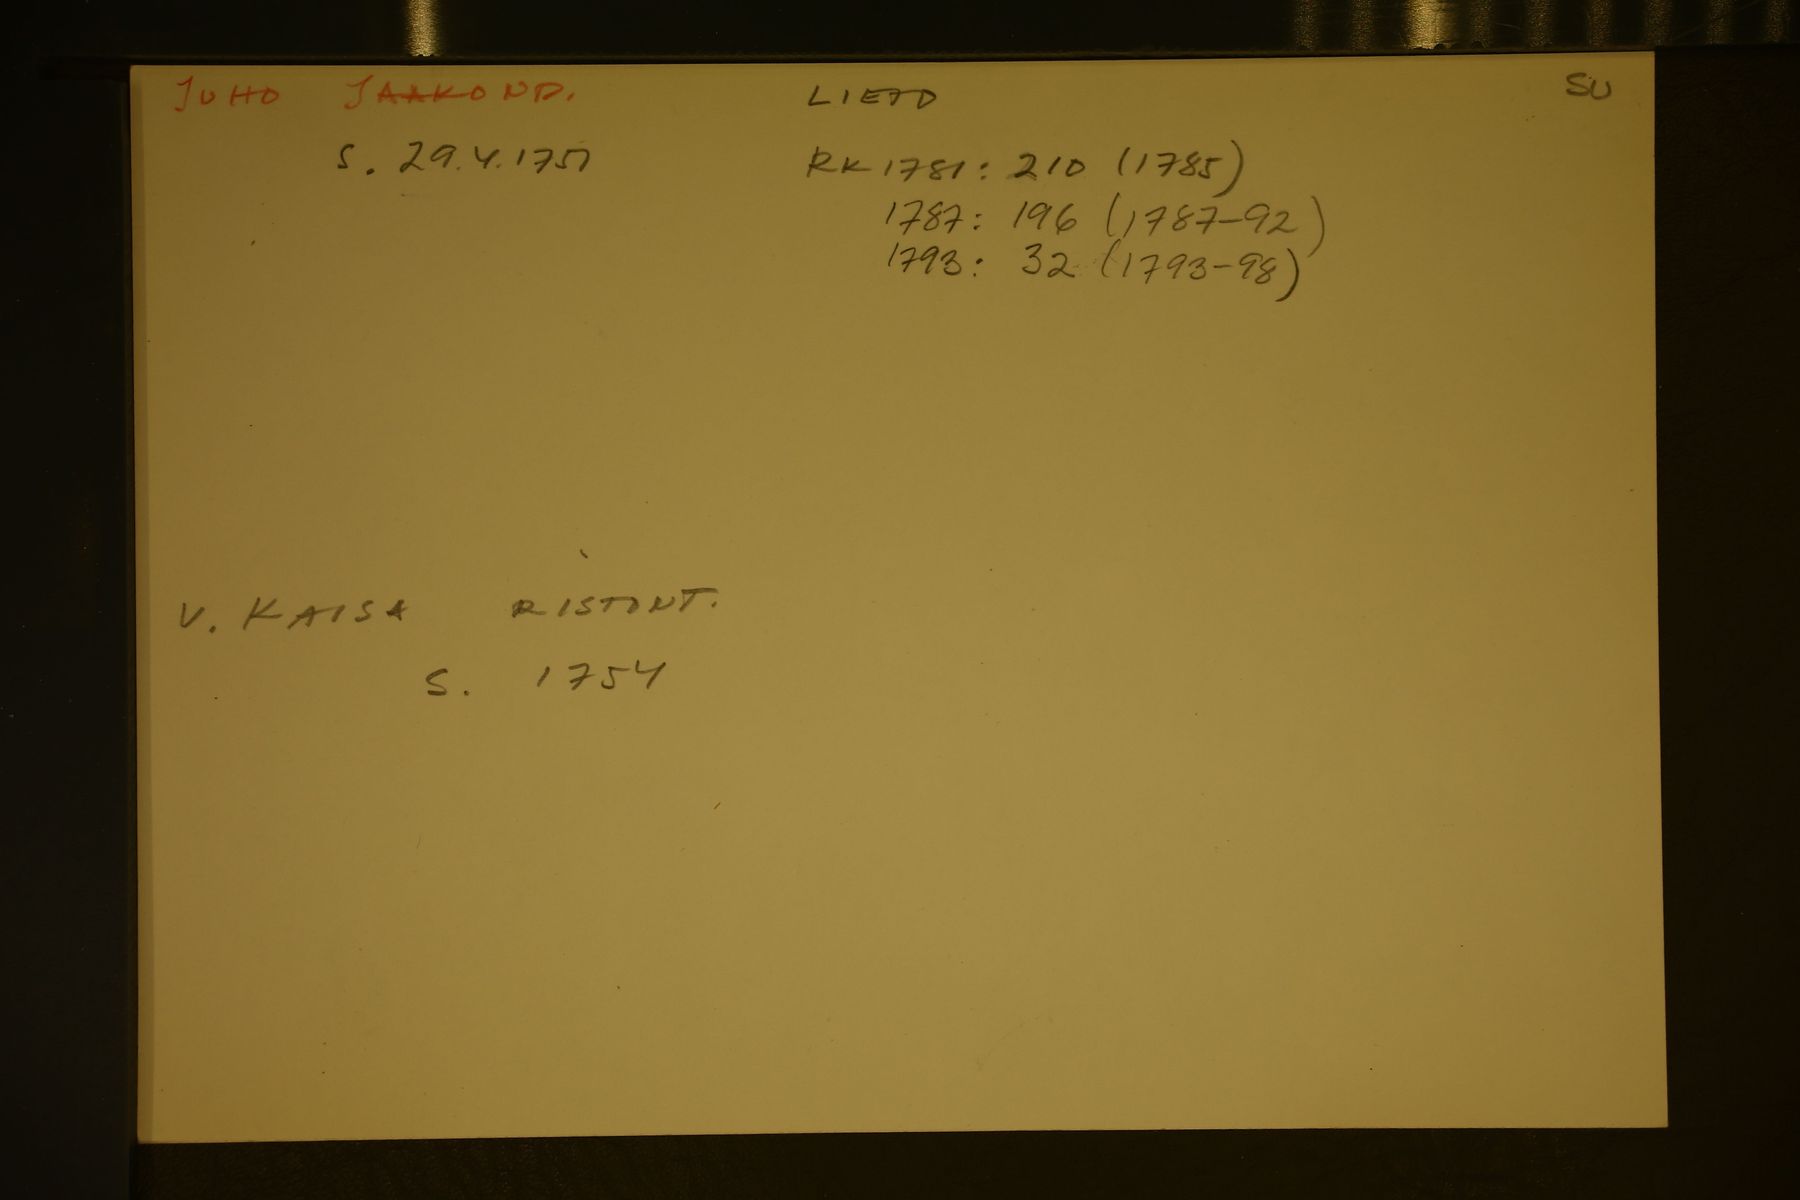 JUHO JAAKONP. LIETO SU
S. 29.4.1757
RK 1781: 210 (1785)
1787: 196 (1787-92)
1793: 32 (1793-98)
V. KAISA RISTONT.
S. 1754